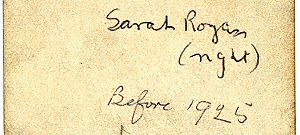 Sarah Rogers
(right)
Before 1925